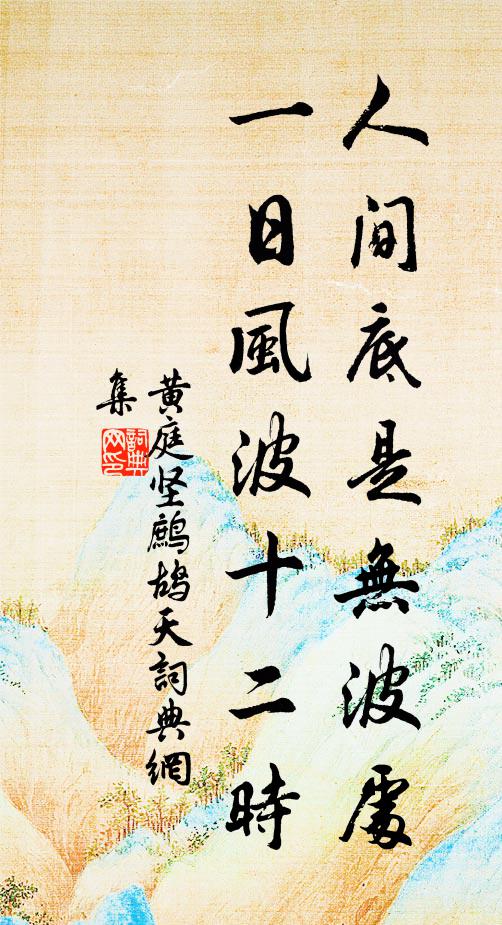 人间底是無波處
一日風波十二時
黄庭坚鷓鴣天詞典網
集
詞典
网印